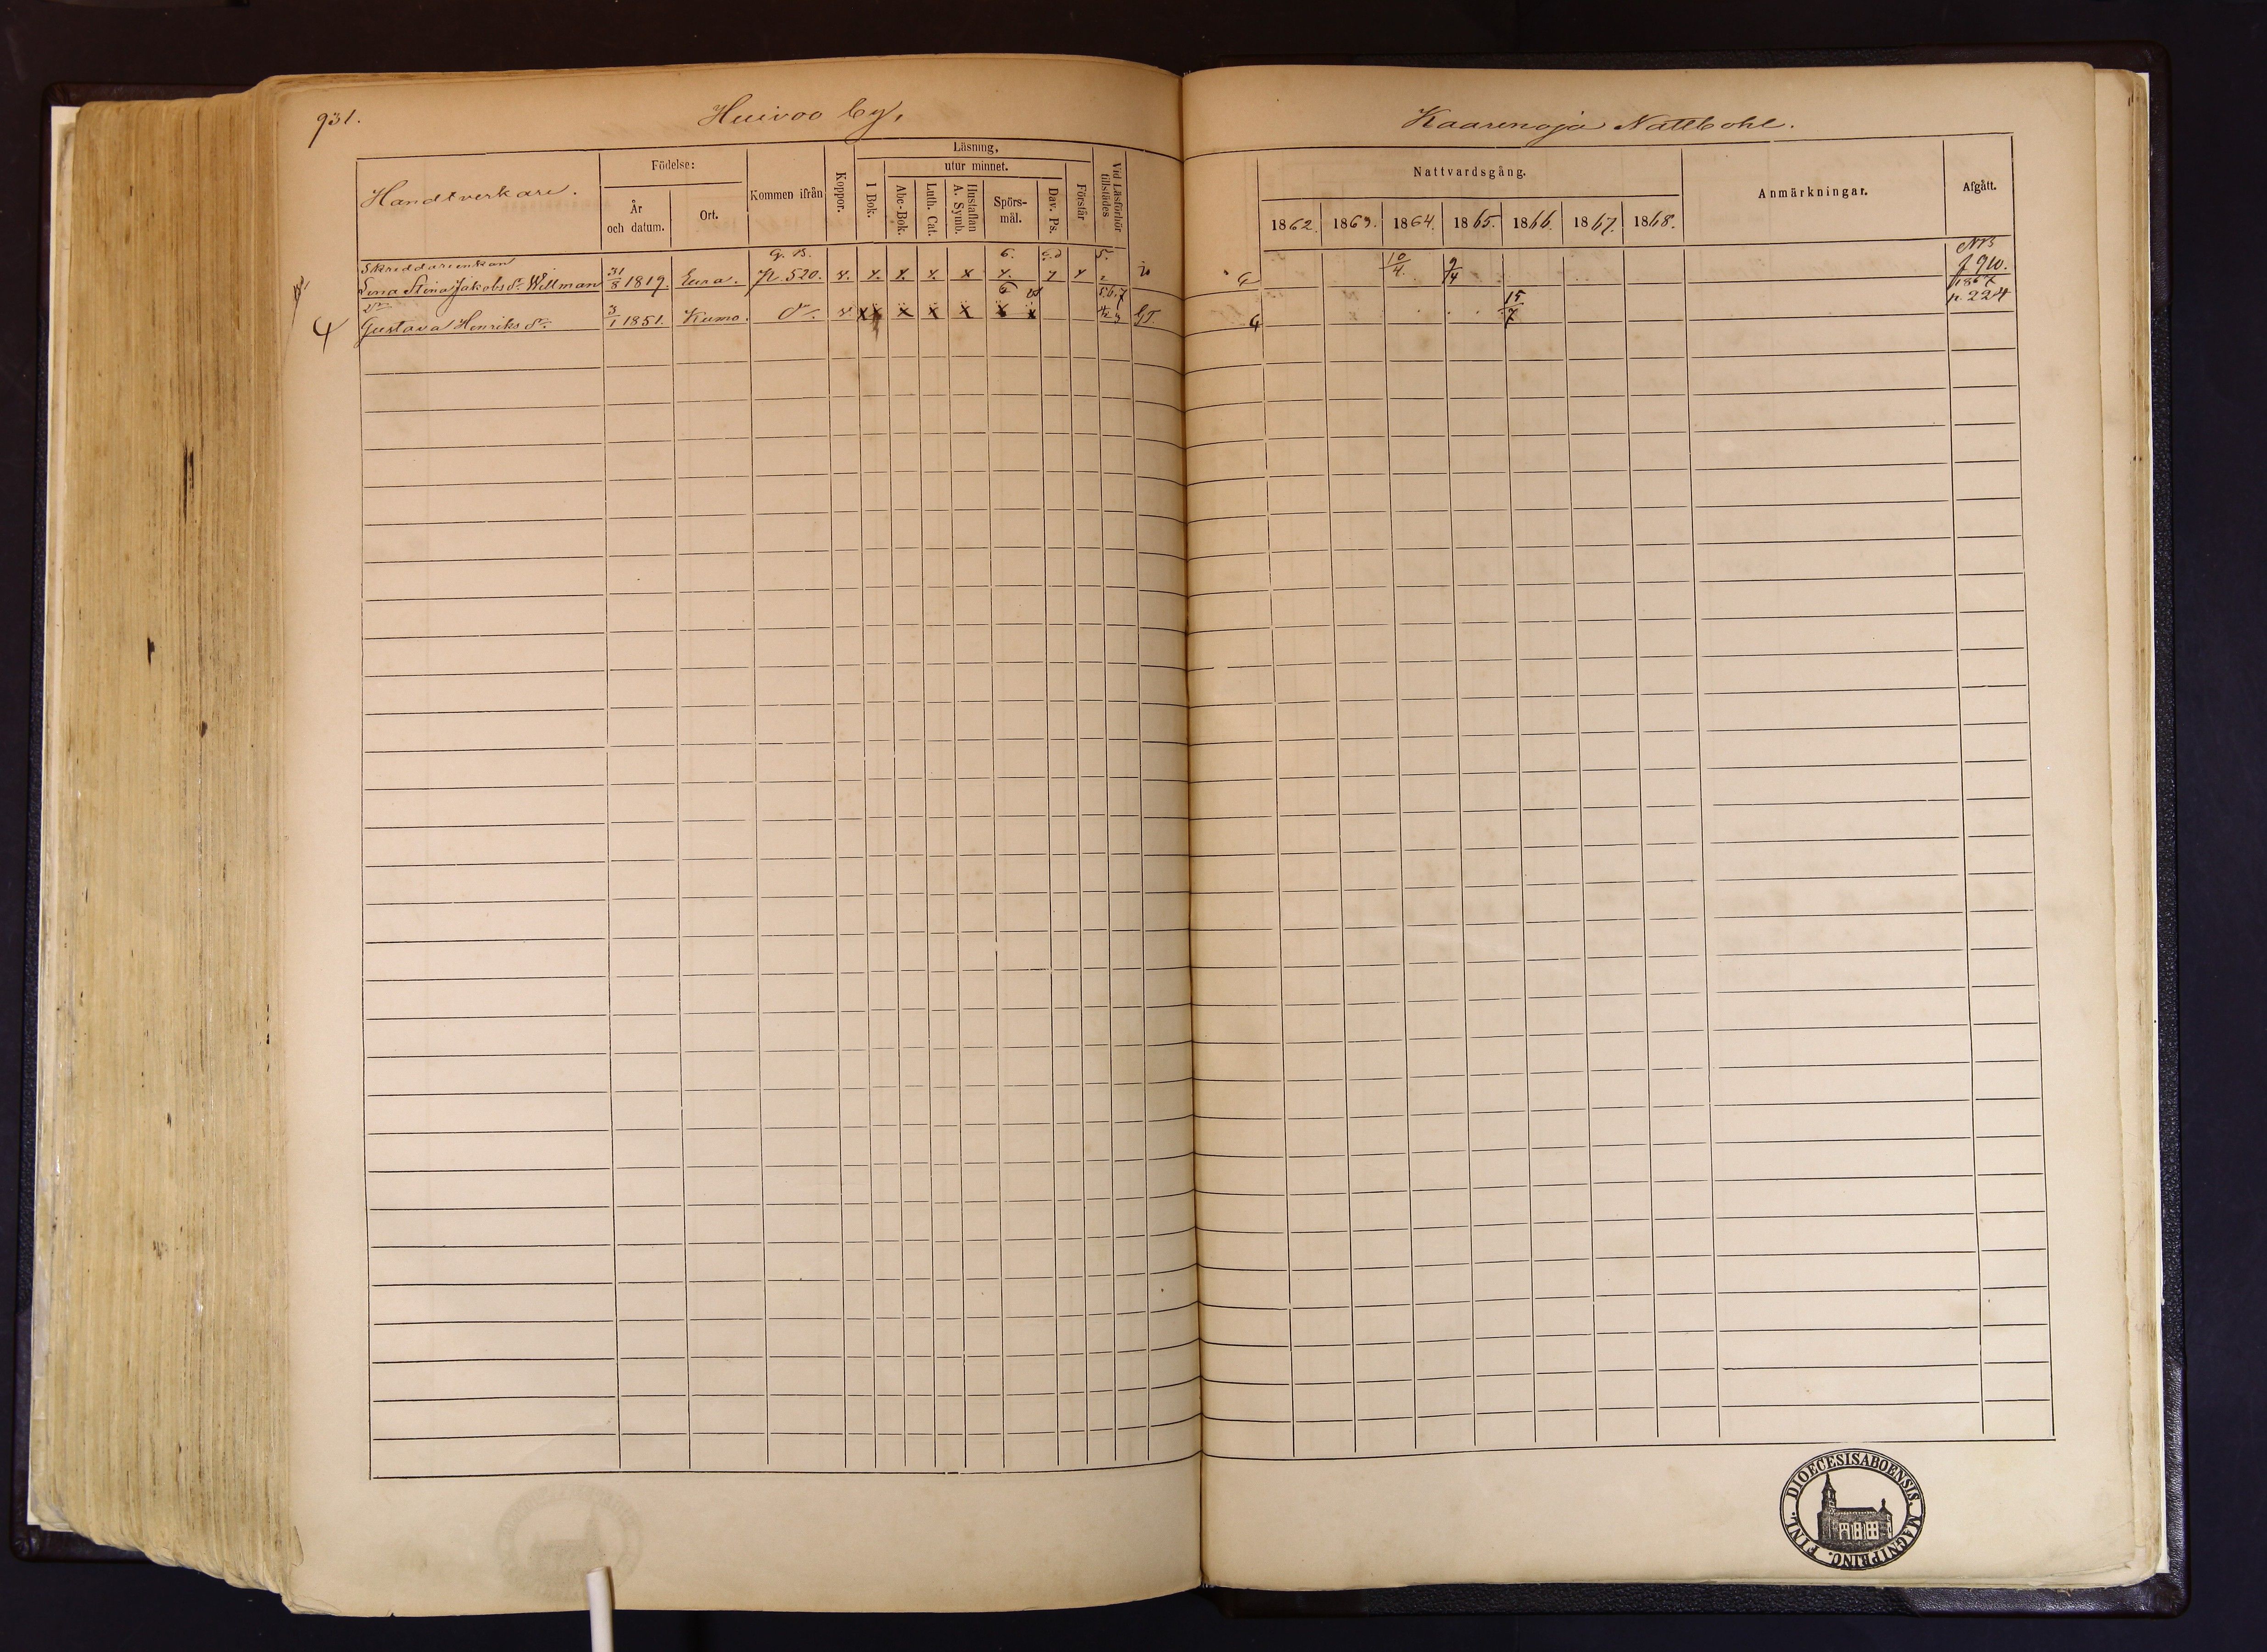 931.
Huivoo by,
Kaarenoja Nattbohl.
Handtverkare.
Födelse:
År och datum.
Ort.
Kommen ifrån
Koppor.
Läsning,
I Bok.
utur minnet.
Abc-Bok.
Luth. Cat.
Hustaflan A. Symb.
Spörs-mål.
Dav. Ps.
Förstår
Vid Läsförhör tillstädes
Nattvardsgång.
1862. 1863. 1864. 1865. 1866. 1867. 1868.
Anmärkningar.
Afgått.
Skreddareenkan G. B. 6. 5. NB
Lena Stina Jakobs dr. Wellman 31/8 1819. Eura. p. 520. v. x. x. x. x x. 10/4. 9/4 f 910.
1867
Gustava Henriks dr. 3/1 1851. Kumo. dr. v x x x x x x G.T. 15/7 p. 224
DIOECESIS ABOENSIS. MAGNI PRINC. FINL.